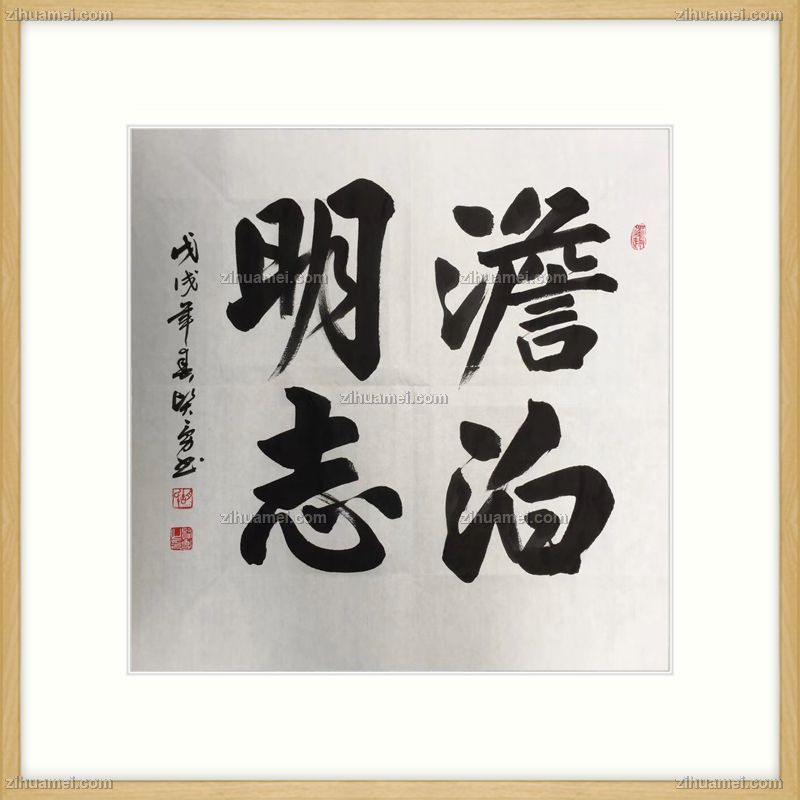 澹泊
明志
戊戌年春贤勇书
zihuamei.com
zihuamei.com
zihuamei.com
zihuamei.com
zihuamei.com
zihuamei.com
zihuamei.com
zihuamei.com
zihuamei.com